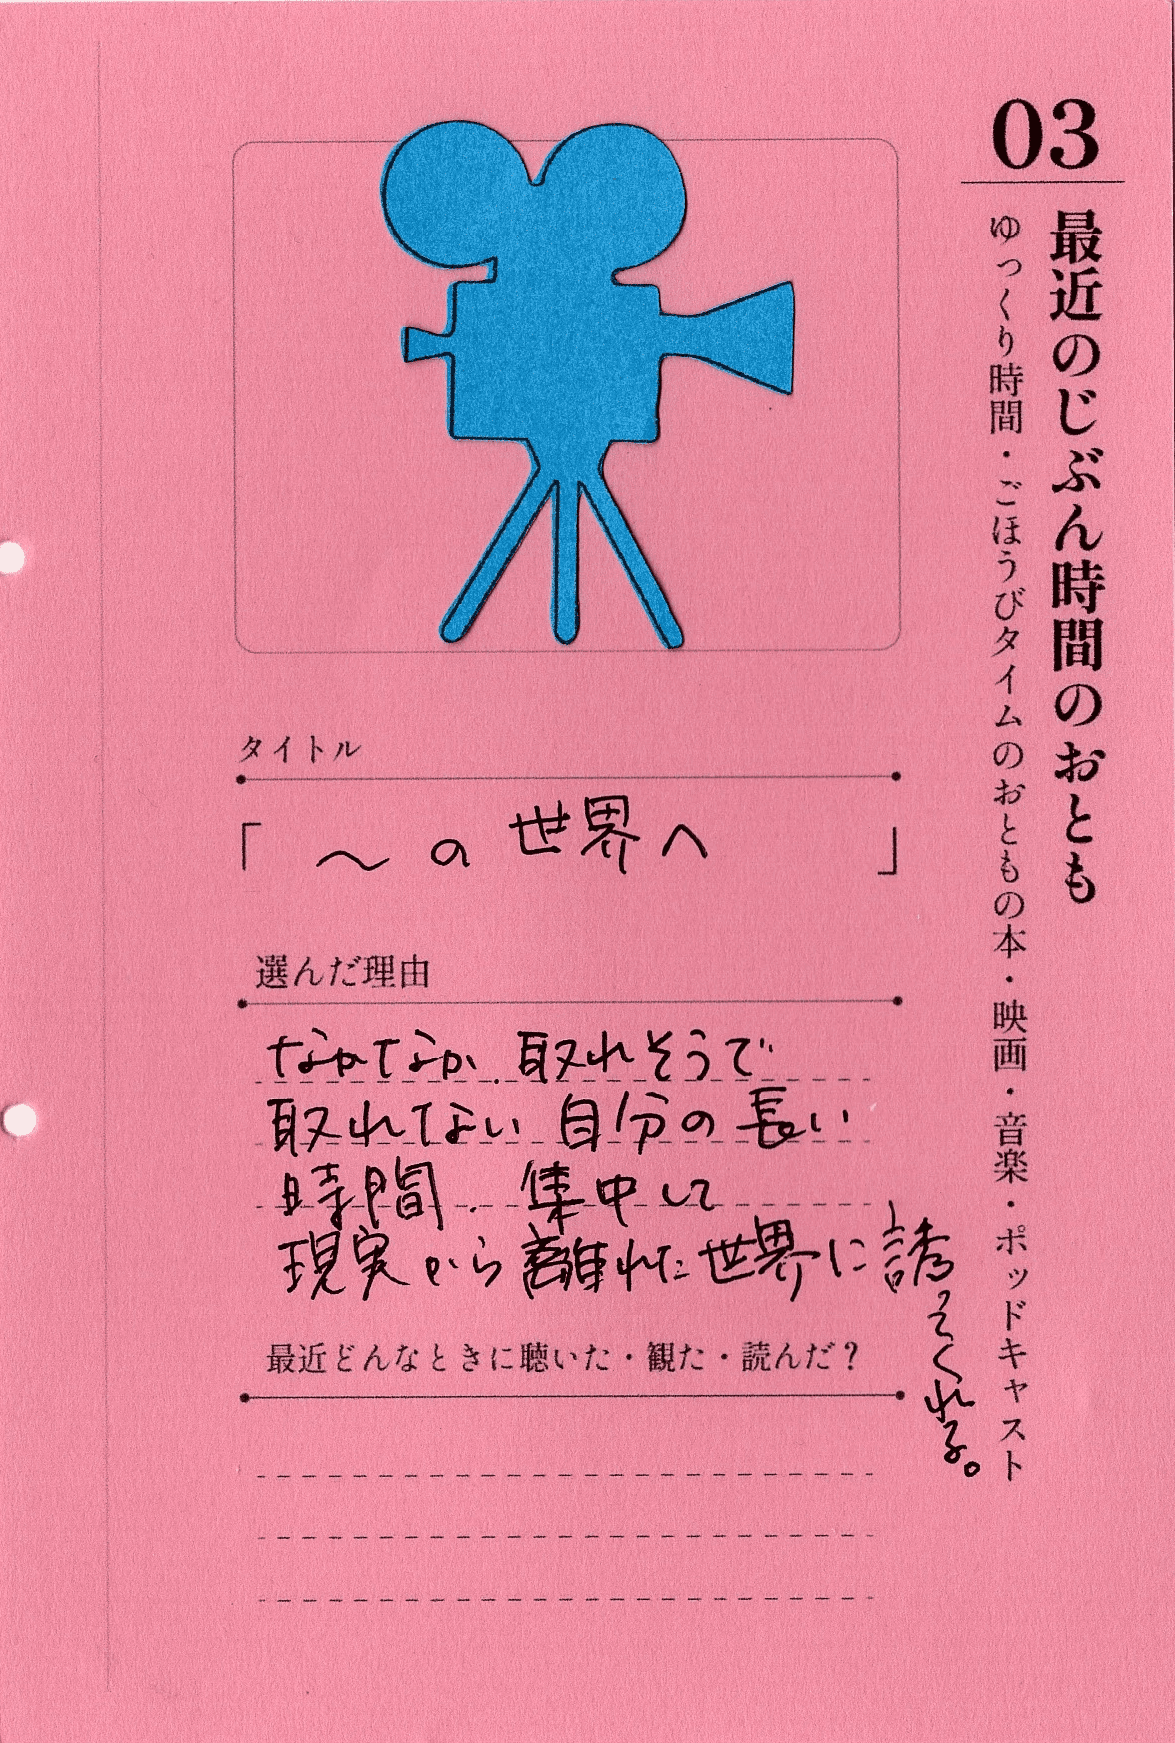 03
最近のじぶん時間のおとも
ゆっくり時間・ごほうびタイムのおともの本・映画・音楽・ポッドキャスト
タイトル
「 〜の世界へ 」
選んだ理由
なかなか取れそうで
取れない自分の長い
時間.集中して
現実から離れた世界に誘
ってくれる。
最近どんなときに聴いた・観た・読んだ?